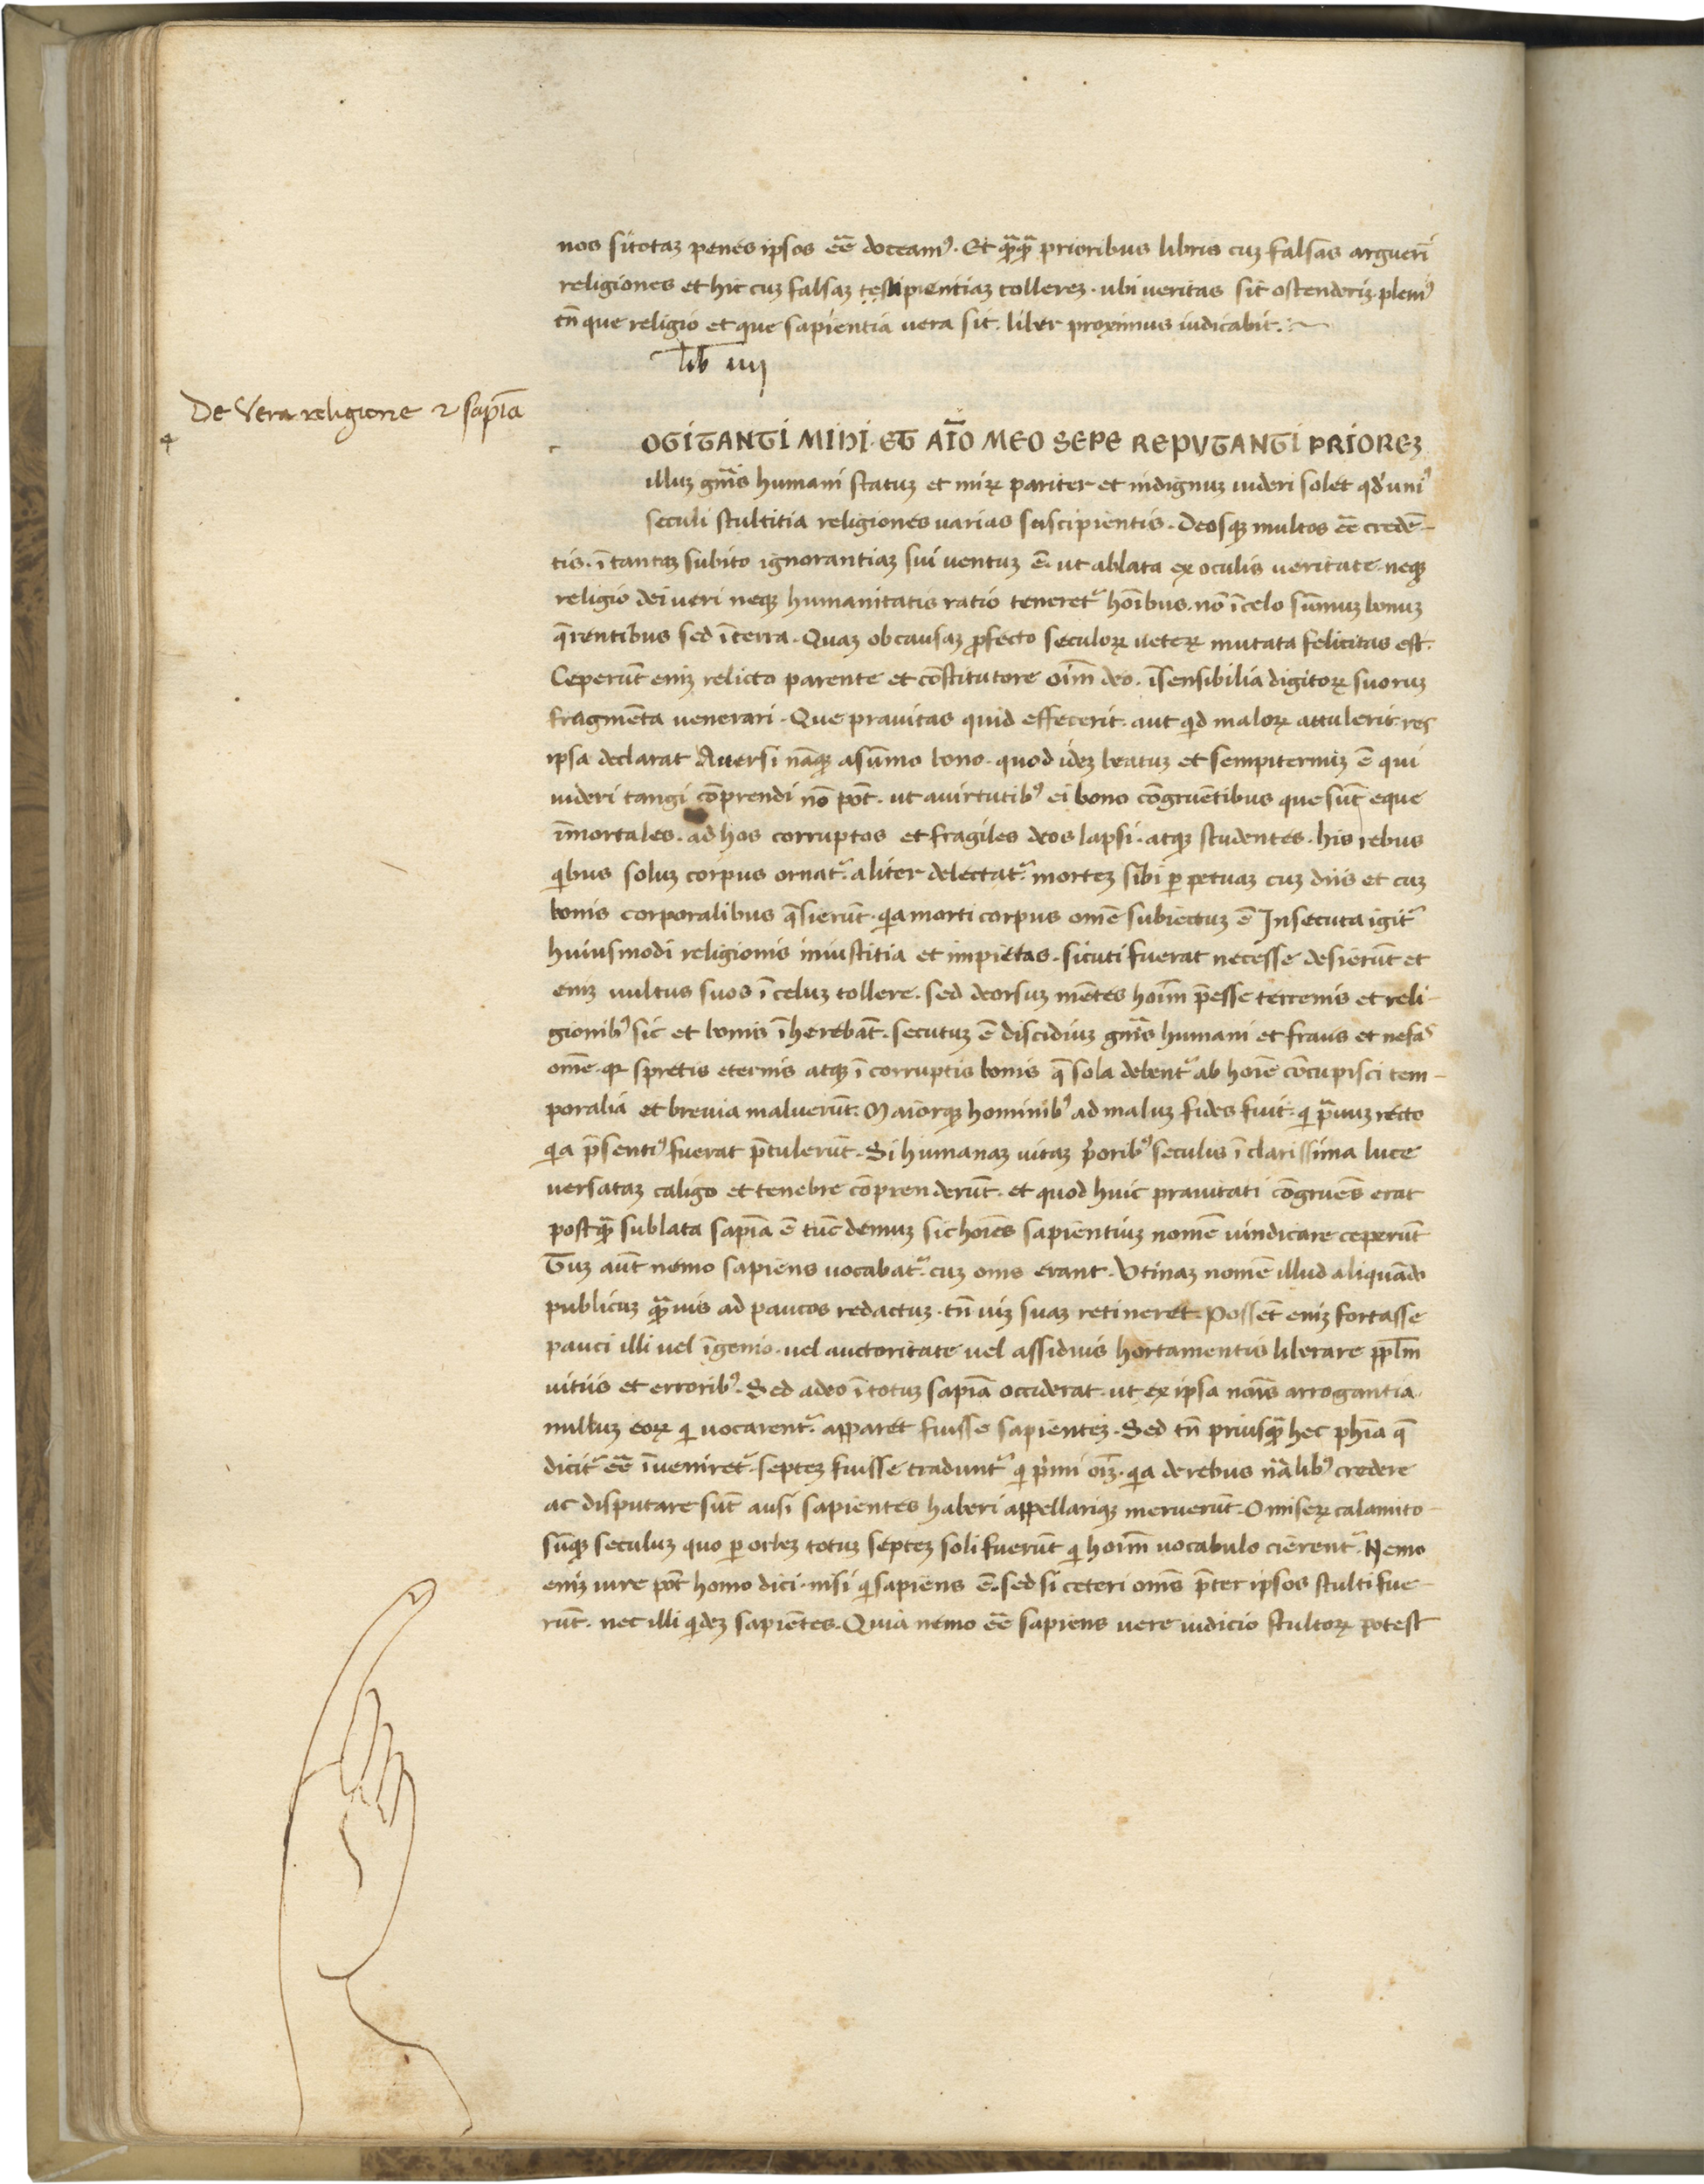 nos sit totaꝫ penes ipsos eē̄ doceamꝰ. Et qͣ̄qͣ̄ prioribus libris cuꝫ falsas arguerī
religiones et hic cuꝫ falsaꝫ sapientiaꝫ tollereꝫ. ubi veritas sit ostenderiꝫ. plenꝰ
tn̄ que religio et que sapientia uera sit. liber proximus iudicabit.
lib iiij
De Vera religione ⁊ sapīa
4
OGITANTI MIHI ET AĪO MEO SEPE REPVTANTI PRIOREꝫ
illuꝫ gn̄is humani statuꝫ et miꝝ pariter et indignuꝫ uideri solet qd̓ uniꝰ
seculi stultitia religiones uarias suscipientis. Deosqꝫ multos eē̄ credē-
tis. ī tantaꝫ subito ignorantiaꝫ sui uentuꝫ ē. ut ablata ex oculis ueritate. neqꝫ
religio dei ueri neqꝫ humanitatis ratio teneret᷑ hoībus. nō ī celo sūmuꝫ bonuꝫ
q̄rentibus sed ī terra. Quaꝫ ob causaꝫ ꝓfecto seculoꝝ ueteꝝ mutata felicitas est.
Ceperūt eniꝫ relicto parente et cōstitutore oīm deo. īsensibilia digitoꝝ suoruꝫ
fragmēta uenerari. Que prauitas quid effecerit. aut qͥd maloꝝ attulerit. res
ipsa declarat Auersi nāqꝫ a sūmo bono. quod ideꝫ beatuꝫ et sempiternuꝫ ē qui
uideri tangi cōprendi nō pōt. ut a uirtutibꝰ ei bono cōgruētibus que sūt eque
īmortales. ad hos corruptos et fragiles deos lapsi. atqꝫ studentes. his rebus
qͥbus soluꝫ corpus ornat᷑. aliter delectat᷑. morteꝫ sibi ꝑpetuaꝫ cuꝫ diis et cuꝫ
bonis corporalibus q̄sierūt. qͥa morti corpus omē subiectuꝫ ē Insecuta igit᷑
huiusmodi religionis iniustitia et impietas. sicuti fuerat necesse desierūt et
eniꝫ uultus suos ī celuꝫ tollere. sed deorsuꝫ mētes hoīm p̄esse terrenis et reli-
gionibꝰ sic et bonis īherebāt. secutuꝫ ē discidiuꝫ gn̄is humani et fraus et nefas
omē. qꝛ spretis eternis atqꝫ ī corruptis bonis q̄ sola debent᷑ ab hoīe cōcupisci tem-
poralia et breuia maluerūt. Maiorqꝫ hominibꝰ ad maluꝫ fides fuit. qͥ pͣuuꝫ recto
qͥa p̄sentiꝰ fuerat p̄tulerūt. Si humanaꝫ uitaꝫ pͥoribꝰ seculis ī clarissima luce
uersataꝫ caligo et tenebre cōprenderūt. et quod huic prauitati cōgruēs erat
postqͣ̄ sublata sapīa ē tūc demuꝫ sic hoīes sapientiuꝫ nomē uindicare ceperūt
Tuꝫ aūt nemo sapiens uocabat᷑. cuꝫ om̄s erant. Utinaꝫ nomē illud aliquādo
publicuꝫ qͣ̄uis ad paucos redactuꝫ. tn̄ uiꝫ suaꝫ retineret. Possēt eniꝫ fortasse
pauci illi uel īgenio. uel auctoritate uel assiduis hortamentis liberare ppl̄m
uitiis et erroribꝰ. Sed adeo ī totuꝫ sapīa occiderat. ut ex ipsa noīs arrogantia.
nulluꝫ eoꝝ qͥ uocarent᷑. apparet fuisse sapienteꝫ. Sed tn̄ priusqͣ̄ hec ph̄ia q̄
dicit᷑ eē̄ īueniret᷑. septeꝫ fuisse tradunt᷑ qͥ pͥmi oīꝫ. qͥa de rebus nālibꝰ credere
ac disputare sūt ausi sapientes haberi appellariqꝫ meruerūt. O miseꝝ calamito-
sūqꝫ seculuꝫ quo ꝑ orbeꝫ totuꝫ septeꝫ soli fuerūt qͥ hoīm uocabulo cierent᷑. Nemo
eniꝫ iure pōt homo dici. nisi qͥ sapiens ē. sed si ceteri om̄s p̄ter ipsos stulti fue-
rūt. nec illi qͥdeꝫ sapiētes. Quia nemo eē̄ sapiens uere iudicio stultoꝝ potest